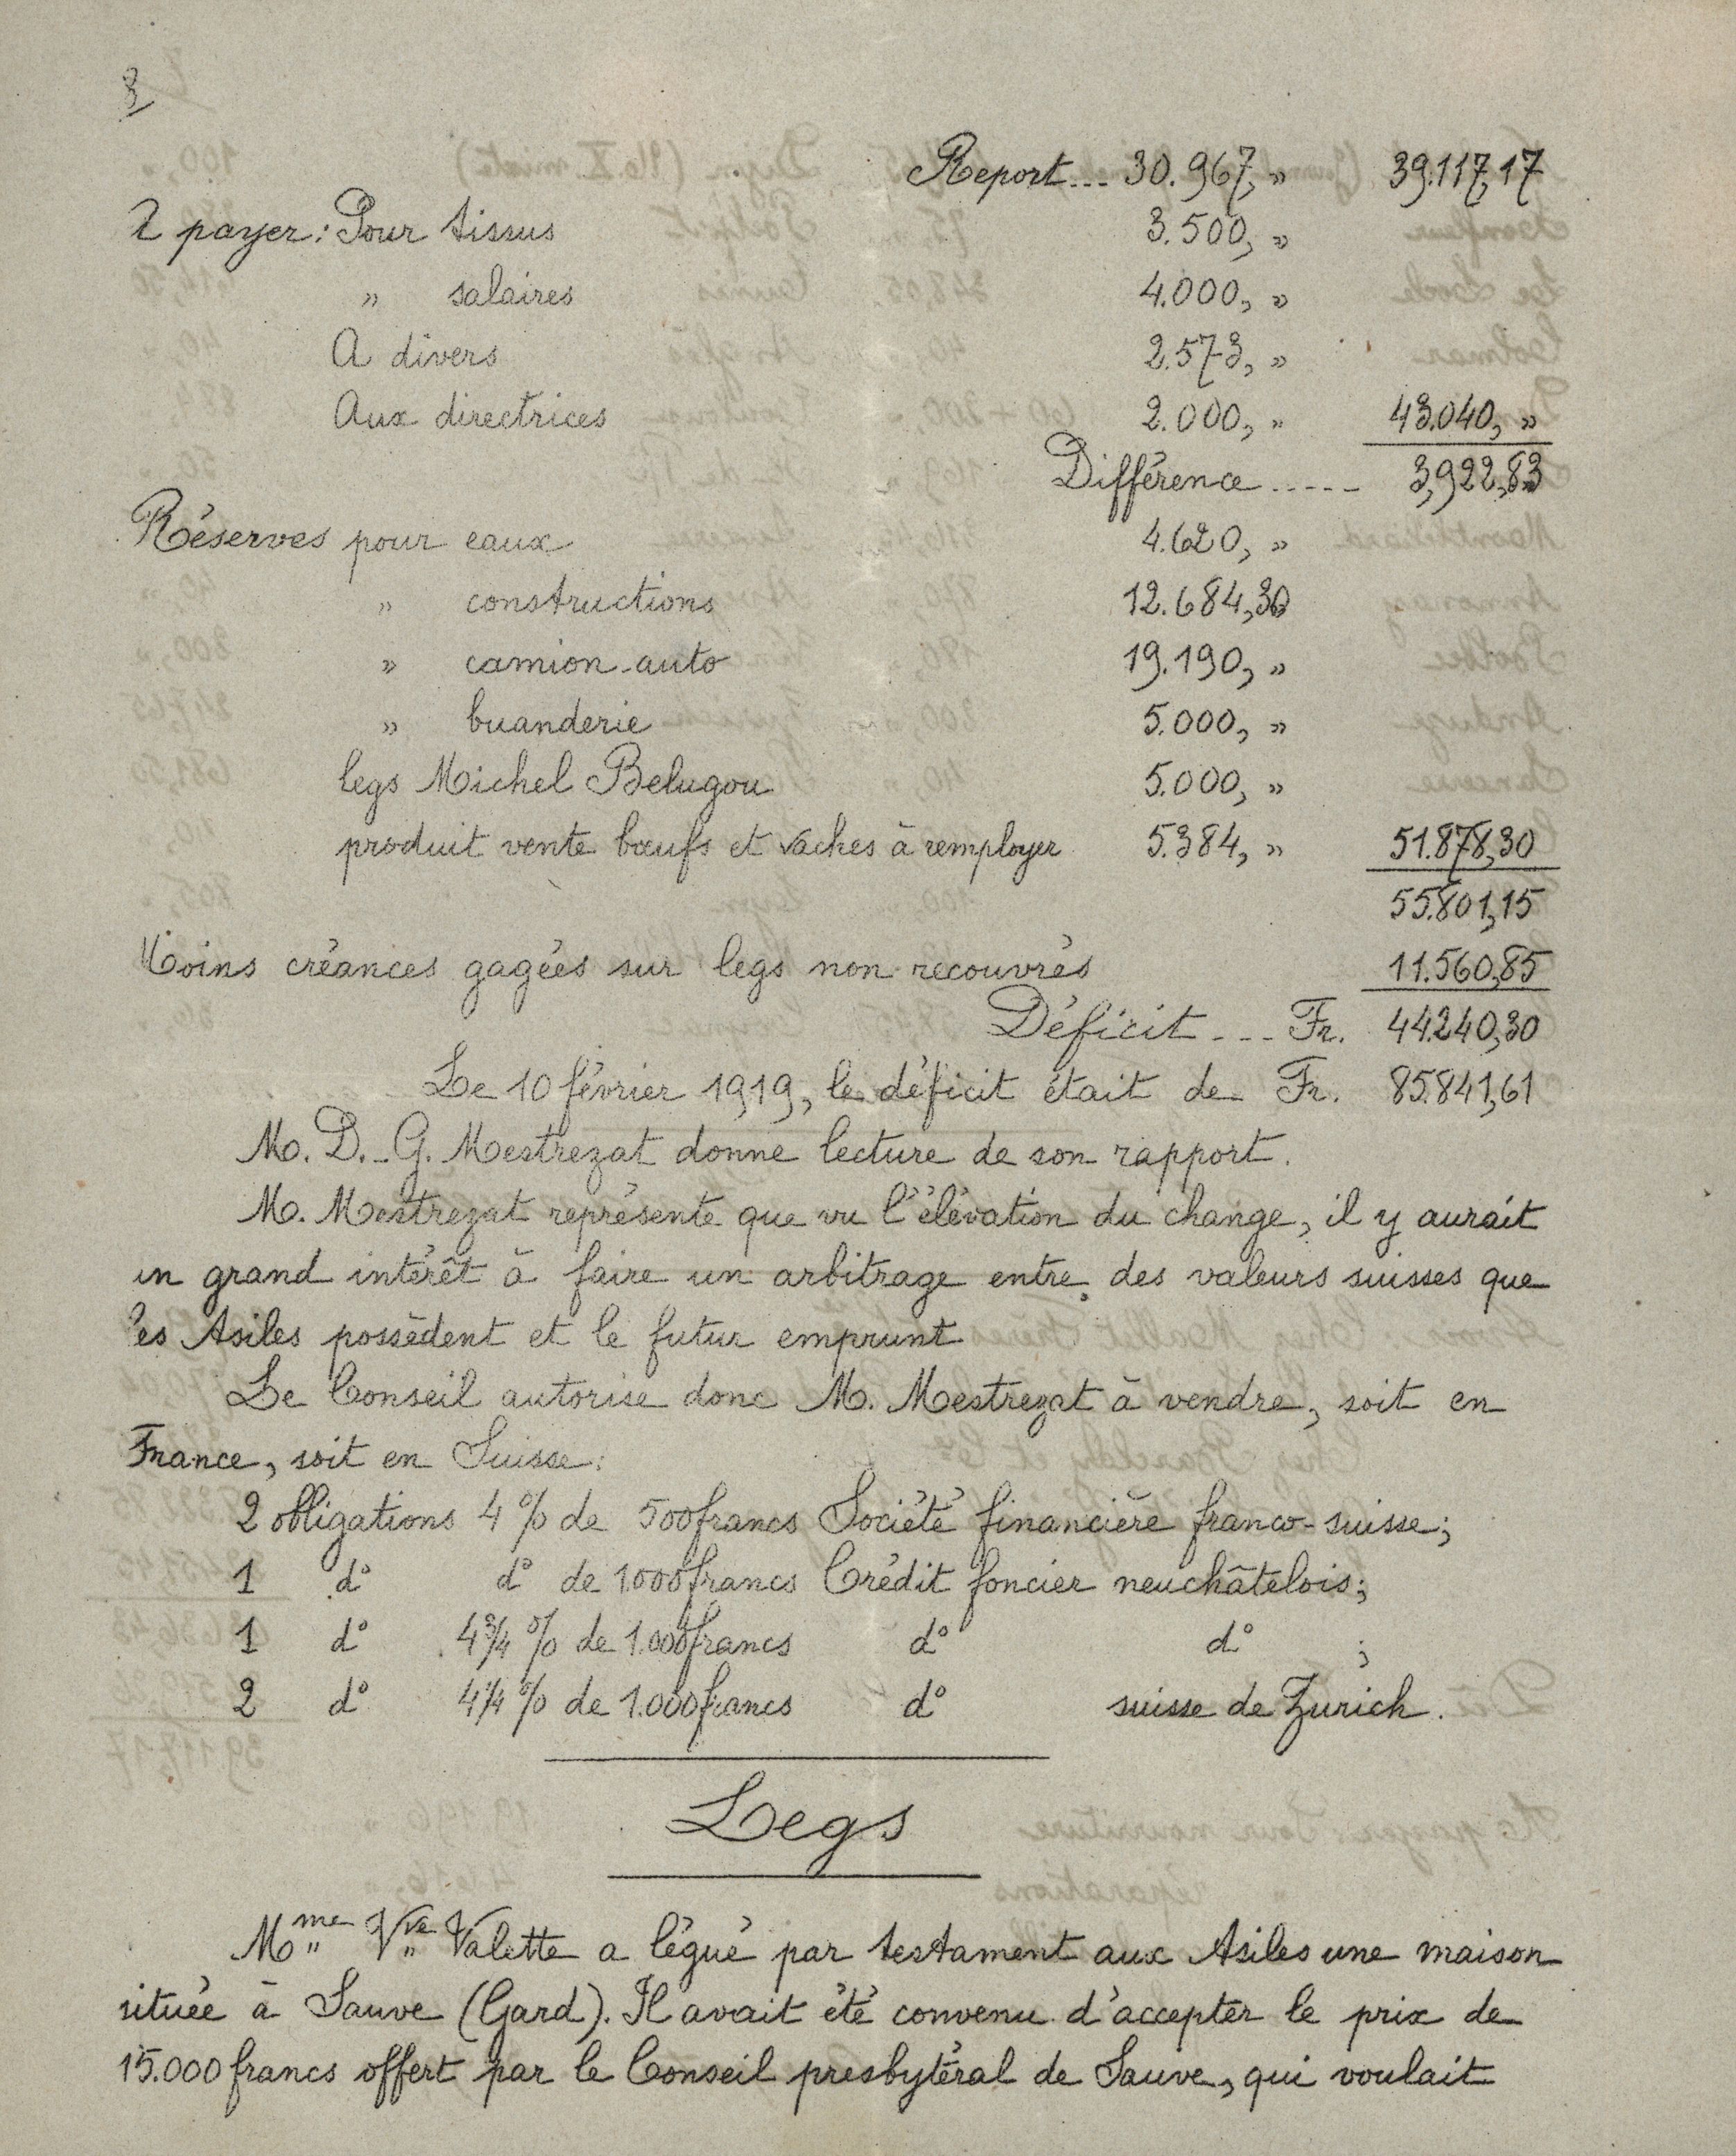 8
Report... 30.967,» 39.117,17
à payer: Pour tissus 3.500,»
» salaires 4.000,»
A divers 2.573,»
Aux directrices 2.000,» 43.040,»
Différence ..... 3,922,83
Réserves pour eaux 4.620,»
» constructions 12.684,30
» camion-auto 19.190,»
» buanderie 5.000,»
legs Michel Belugou 5.000,»
produit vente bœufs et vaches à remployer 5.384,» 51.878,30
55.801,15
Moins créances gagées sur legs non recouvrés 11.560,85
Déficit ... Fr. 44.240,30
Le 10 février 1919, le déficit était de Fr. 85.841,61
M. D.-G. Mestrezat donne lecture de son rapport.
M. Mestrezat représente que vu l'élévation du change, il y aurait
un grand intérêt à faire un arbitrage entre des valeurs suisses que
les Asiles possèdent et le futur emprunt
Le Conseil autorise donc M. Mestrezat à vendre, soit en
France, soit en Suisse:
2 obligations 4 % de 500 francs Société financière franco-suisse;
1 d° d° de 1000 francs Crédit foncier neuchâtelois;
1 d° 4 3/4 % de 1.000 francs d° d° ;
2 d° 4 1/4 % de 1.000 francs d° suisse de Zurich.
Legs
Mme Vve Valette a légué par testament aux Asiles une maison
située à Sauve (Gard). Il avait été convenu d'accepter le prix de
15.000 francs offert par le Conseil presbytéral de Sauve, qui voulait